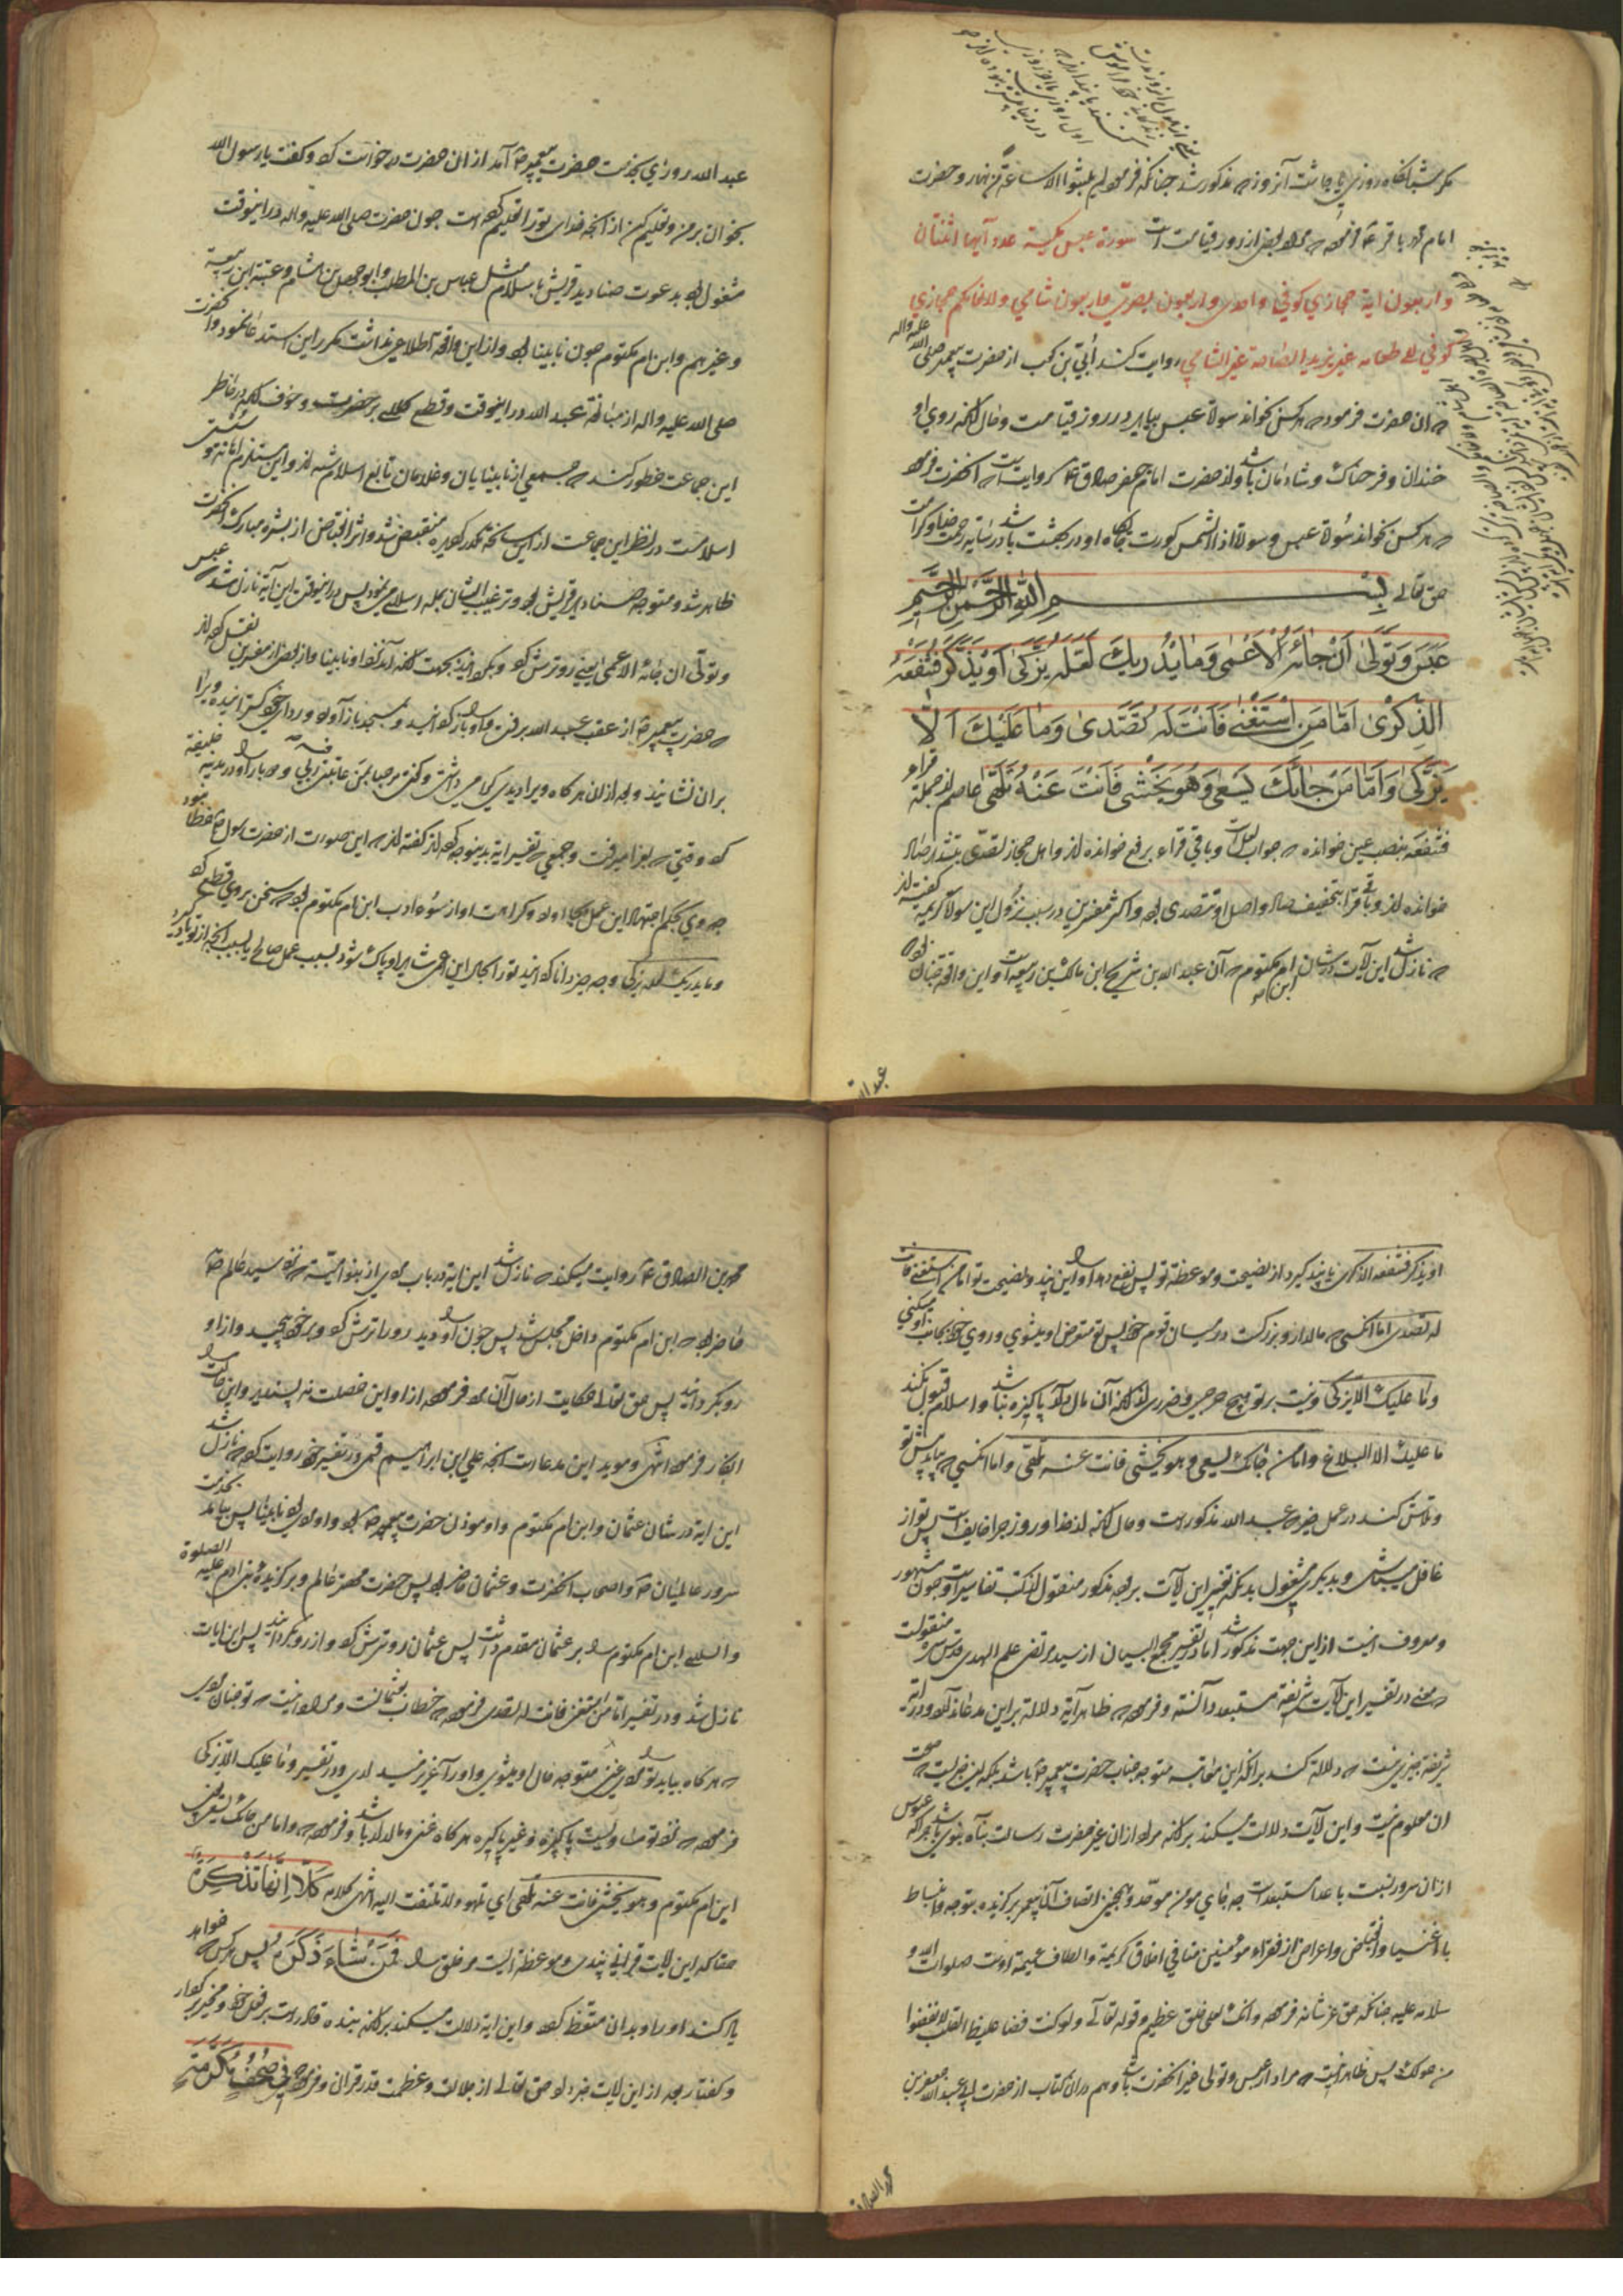 مکر شبانکاه روزی یا چاشت آنروز که مذکور شد چنانکه فرموده لم یلبثوا الا ساعة من نهار و حضرت
امام محمد باقر ع فرموده که مراد بعضی از روز قیامت است سورة عبس مکیة عدد آیها اثنتان
و اربعون ایة حجازی کوفی واحدی و اربعون بصری و اربعون شامی ولانعامکم حجازی
کوفی الی طعامه غیر یزید الصاخة غیر الشامی روایت کند أبیّ بن کعب از حضرت پیغمبر صلی الله علیه واله
که ان حضرت فرمود که هر کس بخواند سوره عبس بیاید در روز قیامت و حال انکه روی او
خندان و فرحناک و شادمان باشد و از حضرت امام جعفر صادق ع روایت است که انحضرت فرمود
که هر کس بخواند سورة عبس و سورة اذا الشمس کورت جایکاه او در بهشت باشد در سایه رحمت خدا و کرامت
حق تعالی بسم الله الرحمن الرحیم
عَبَسَ وَتَوَلّیٰ اَنْ جٰائَهُ الْاَعْمیٰ وَمٰا یُدْرِیکَ لَعَلَّهُ یَزَّکّیٰ اَوْ یَذَّکَّرُ فَتَنْفَعَهُ
الذِّکْریٰ اَمّٰا مَنِ اسْتَغْنیٰ فَاَنْتَ لَهُ تَصَدّیٰ وَمٰا عَلَیْکَ اَلّٰا
یَزَّکّیٰ وَاَمّٰا مَنْ جٰائَکَ یَسْعیٰ وَهُوَ یَخْشیٰ فَاَنْتَ عَنْهُ تَلَهّیٰ عاصم از جملة قراء
فتنفعه بنصب عین خوانده که جواب لعل است و باقی قراء برفع خوانده اند و اهل حجاز تصدّی بتشدید صاد
خوانده اند و باقی قراء بتخفیف صاد و اصل او تتصدی بود و اکثر مفسرین در سبب نزول این سورة کریمه گفته اند
که نازل شد این آیات در شان ابن ام مکتوم که آن عبد الله بن شریح ابن مالک بن ربیعه است و این واقعه چنان بود که
عبد الله روزی بخدمت حضرت پیغمبر ص آمد از ان حضرت درخواست کرد و کفت یا رسول الله
بخوان بر من و تعلیم کن از انچه خدای تو را تعلیم کرده است چون حضرت صلی الله علیه واله در اینوقت
مشغول بود بدعوت صنادید قریش باسلام مثل عباس بن المطلب و ابو جهل بن هشام و عتبة ابن ربیعه
و غیرهم و ابن ام مکتوم چون نابینا بود و از این واقعه اطلاعی نداشت مکرر این استدعا نمود و انحضرت
صلی الله علیه واله از مبالغهٔ عبد الله در اینوقت و قطع کلام بر حضرت و خوف انکه در خاطر
این جماعت خطور کند که جمعی از نابینایان و غلامان تابع اسلام شده اند و این مستلزم اهانت و سستی
اسلامست در نظر این جماعت از این سانحه مکدر کردیده منقبض شد و اثر انقباض از بشره مبارک انحضرت
ظاهر شد و متوجه صنادید قریش بود و ترغیب ایشان بجمله اسلام می نمود پس در اینوقت این آیه نازل شد که عبس
و تولّی ان جائه الاعمی یعنی رو ترش کرد و بکردانید بجهت انکه آمد نزد او نابینا و از بعضی از مفسرین نقل کرده اند
که حضرت پیغمبر ص از عقب عبد الله برفت و او را باز کردانید و بمسجد باز آورد و ردای خود کسترانیده ویرا
بران نشانید و بعد از ان هر کاه ویرا دیدی کرامی داشتی و کفتی مرحبا بمن عاتبنی فیه ربی و دوبار او را در مدینه خلیفه
کرد وقتی که بغزا میرفت و جمعی که تفسیر ایه بدینوجه کرده اند گفته اند که این صورت از حضرت رسول ص خطا نبود
چه وی بحکم اجتهاد این عمل بجا آورد و کراهت او از سوء ادب ابن ام مکتوم بود که سخن بر وی قطع کرد
و ما یدریک لعله یزکی و چه چیز دانا کردانید تو را بحال این اعمی شاید او پاک شود بسبب عمل صالح یا بسبب انچه از تو یاد گیرد
او یذکر فتنفعه الذکری یا پند کیرد از نصیحت و موعظهٔ تو پس نفع دهد او را این پند و نصیحت تو اما من استغنی فانت
له تصدی اما انکسی که مالدار و بزرکست در میان قوم خود پس تو متعرض او میشوی و روی خود بجانب او میکنی
و ما علیک الا یزکی و نیست بر تو هیچ حرجی و ضرری از انکه آن مالدار پاکیزه نباشد و اسلام قبول نکند
ما علیک الا البلاغ و اما من جائک یسعی و هو یخشی فانت عنه تلهی و اما انکسی که بیاید پیش تو
و تلاش کند در عمل خیر که عبد الله مذکور است و حال انکه از خدا و روز جزا خایف است پس تو از
غافل میباشی و بدیکری مشغول بدانکه تفسیر این آیات بوجه مذکور منقول از کتب تفاسیر است و چون مشهور
و معروف است از این جهت مذکور شد اما در تفسیر مجمع البیان از سید مرتضی علم الهدی قدس سره منقولست
که وی در تفسیر این آیات شریفه مستبعد دانسته و فرموده که ظاهر آیه دلالة بر این مدعا ندارد و در آیه
شریفه چیزی نیست که دلالة کند بر انکه این معاتبه متوجه جناب حضرت پیغمبر ص باشد بلکه این خبریست که صحت
ان معلوم نیست و این آیات دلالت میکند بر انکه مراد از ان غیر حضرت رسالت پناه نبوی باشد چرا که عبوس
از ان سرور نسبت باعدا مستبعد است چه جای مومن موحد و همچنین اتصاف آن پیغمبر برکزیده بتوجه و انبساط
با اغنیا و انقباض و اعراض از فقراء مومنین منافی اخلاق کریمه و الطاف عمیمه اوست صلوات الله و
سلامه علیه چنانکه حق عز شانه فرموده و انک لعلی خلق عظیم و قوله تعالی ولو کنت فظا غلیظ القلب لانفضوا
من حولک پس ظاهر اینست که مراد از عبس و تولی غیر انحضرت باشد و هم در ان کتاب از حضرت ابی عبد الله جعفر بن
محمد بن الصادق ع روایت میکند که نازل شد این ایه در باب مردی از بنو امیّه که نزد سید عالم ص
حاضر بود که ابن ام مکتوم داخل مجلس شد پس چون او را دید رو را ترش کرد و بر خود پیچید و از او
رو بکردانید پس حق تعالی حکایت از حال آن مرد فرموده از او این خصلت نه پسندید و این حالت را
انکار فرموده انتهی و موید این مدعاست انچه علی ابن ابراهیم قمی در تفسیر خود روایت کرده که نازل شد
این ایه در شان عثمان و ابن ام مکتوم و او موذن حضرت پیغمبر ص بود و او مردی بود نابینا پس بیامد بخدمت
سرور عالمیان ص و اصحاب انحضرت و عثمان حاضر بود پس حضرت مهتر عالم و برکزیدهٔ بنی ادم علیه الصلوة
والسلام ابن ام مکتوم را بر عثمان مقدم داشت پس عثمان رو ترش کرد و از او رو بکردانید پس این ایات
نازل شد و در تفسیر اما من استغنی فانت له تصدی فرموده که خطاب بعثمانست و مراد اینست که تو چنان بودی
که هر کاه بیاید تو را مرد غنی متوجه حال او میشوی و او را عزیز میداری و در تفسیر و ما علیک الا یزکی
فرموده که نزد تو مساویست پاکیزه و غیر پاکیزه هر کاه غنی و مالدار باشد و فرموده که و اما من جائک یسعی یعنی
ابن ام مکتوم و هو یخشی فانت عنه تلهی ای تلهو ولا تلتفت الیه انتهی کلامه کَلّا اِنَّهٰا تَذْکِرَةٌ
حقا که این آیات قرانی پندی و موعظه ایست مر خلق را فَمَنْ شٰاءَ ذَکَرَهُ پس هر کس خواهد
یاد کند او را و بدان متعظ کردد و این ایه دلالت میکند بر انکه بنده قادر است بر فعل خود و مخیر بر کردار
و کفتار بعد از این آیات خبر داد حق تعالی از جلالت و عظمت قدر قرانی و فرمود که فی صُحُفٍ مُکَرَّمَةٍ